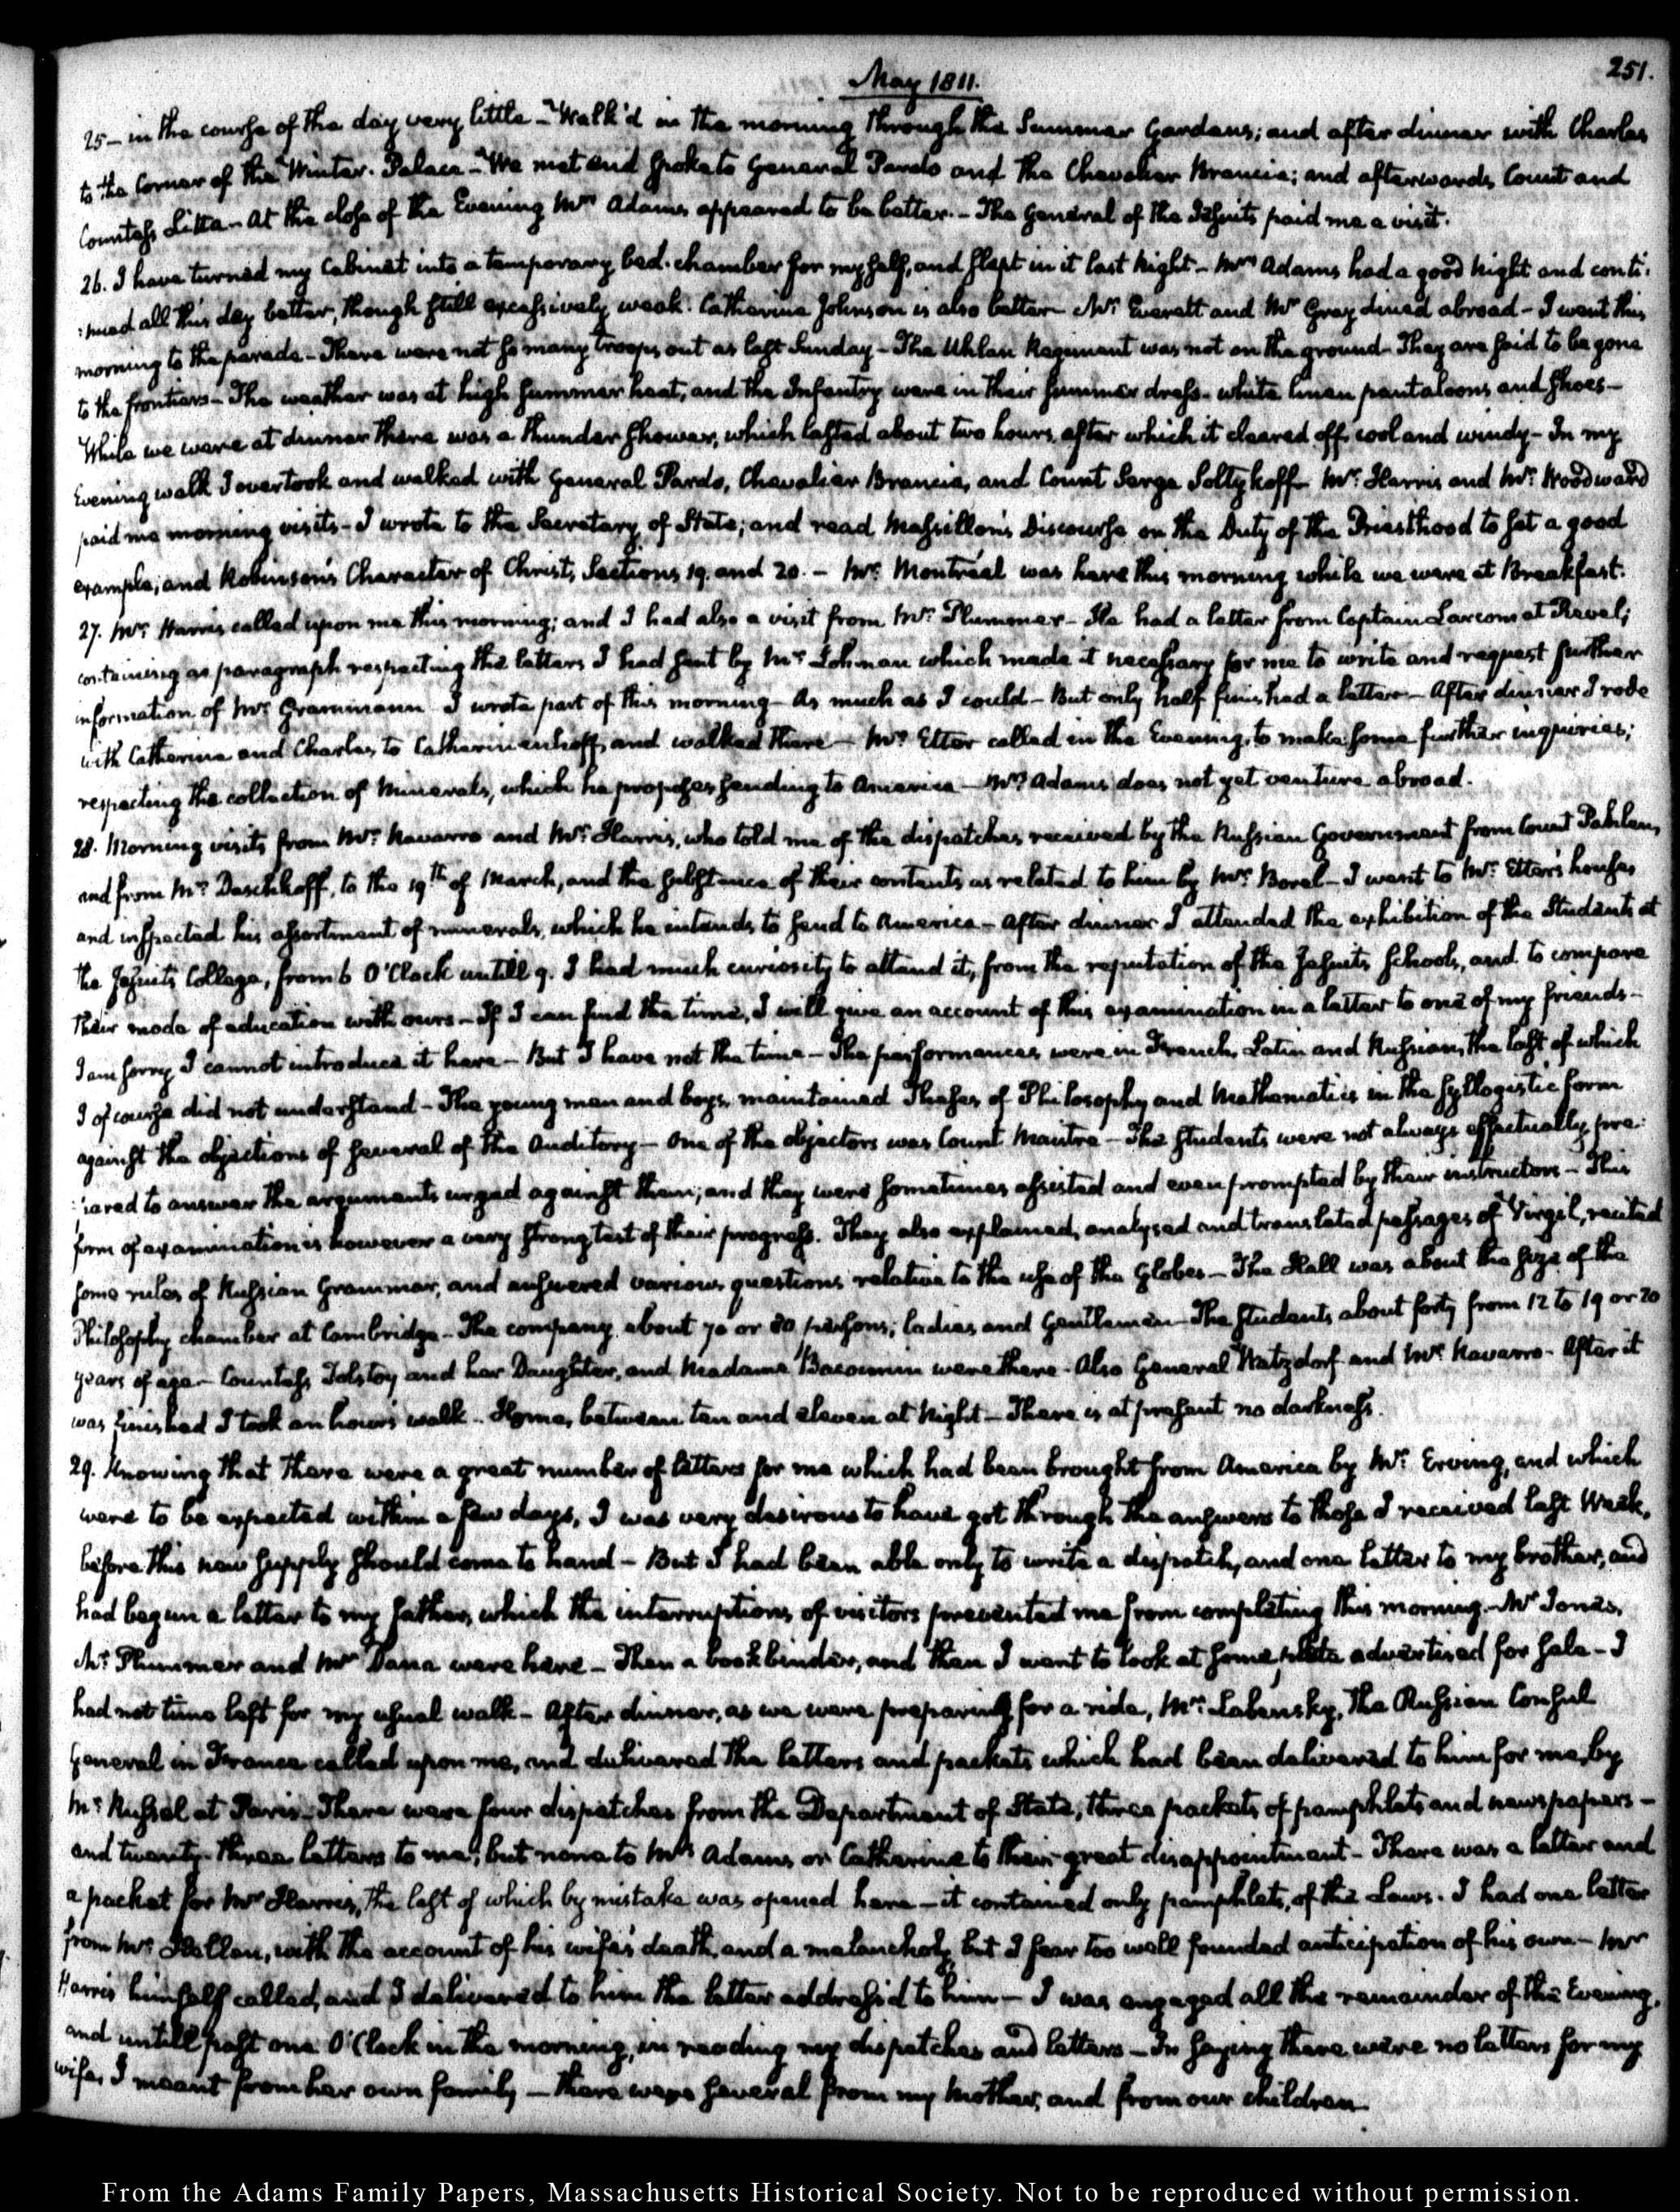 251.
May 1811.
25 — in the course of the day very little — Walk'd in the morning through the Summer Gardens; and after dinner with Charles
to the Corner of the Winter-Palace — We met and spoke to General Pardo and the Chevalier Brancia; and afterwards, Count and
Countess Litta — At the close of the Evening Mrs Adams appeared to be better. — The General of the Jesuits paid me a visit.
26. I have turned my Cabinet into a temporary bed-chamber for myself, and slept in it last Night — Mrs Adams had a good Night and conti-
:nued all this day better, though still excessively weak. Catherine Johnson is also better — Mr Everett and Mr Gray dined abroad — I went this
morning to the parade — There were not so many troops out as last Sunday — The Uhlan Regiment was not on the ground — They are said to be gone
to the frontiers — The weather was at high summer heat, and the Infantry were in their summer dress — white linen pantaloons and shoes —
While we were at dinner there was a thunder shower, which lasted about two hours, after which it cleared off cool and windy — In my
Evening walk I overtook and walked with General Pardo, Chevalier Brancia, and Count Serge Soltykoff — Mr Harris and Mr Woodward
paid me morning visits — I wrote to the Secretary of State; and read Massillon's Discourse on the Duty of the Priesthood to set a good
example; and Robinson's Character of Christ, Sections 19. and 20. — Mr Montréal was here this morning while we were at Breakfast.
27. Mr Harris called upon me this morning; and I had also a visit from Mr Plummer — He had a letter from Captain Larcom at Reval;
containing a paragraph respecting the letters I had sent by Mr Lohman which made it necessary for me to write and request further
information of Mr Grammann — I wrote part of this morning — As much as I could — But only half finished a letter — After dinner I rode
with Catherine and Charles, to Catharinenhoff, and walked there — Mr Etter called in the Evening, to make some further inquiries;
respecting the collection of Minerals, which he proposes sending to America — Mrs Adams does not yet venture abroad.
28. Morning visits from Mr Navarro and Mr Harris, who told me of the dispatches received by the Russian Government from Count Pahlen,
and from Mr Daschkoff, to the 19th of March, and the substance of their contents as related to him by Mr Borel — I went to Mr Etter's houses
and inspected his assortment of minerals, which he intends to send to America — After dinner I attended the exhibition of the Students at
the Jesuits College, from 6 O'Clock untill 9. I had much curiosity to attend it, from the reputation of the Jesuits Schools, and to compare
their mode of education with ours — If I can find the time, I will give an account of this examination in a letter to one of my friends —
I am sorry I cannot introduce it here — But I have not the time — The performances were in French, Latin and Russian, the last of which
I of course did not understand — The young men and boys, maintained Theses of Philosophy and Mathematics in the syllogistic form
against the objections of several of the Auditory — One of the objectors was Count Maistre — The students were not always effectually pre:
:pared to answer the arguments urged against them; and they were sometimes assisted and even prompted by their instructors — This
form of examination is however a very strong test of their progress. They also explained, analysed and translated passages of Virgil, recited
some rules of Russian Grammar, and answered various questions relative to the use of the Globes — The Hall was about the size of the
Philosophy chamber at Cambridge — The company, about 70 or 80 persons, Ladies and Gentlemen — The students about forty from 12 to 19 or 20
years of age — Countess Tolstoy and her Daughter, and Madame Bacounin were there — Also General Watzdorf and Mr Navarro — After it
was finished I took an hour's walk — Home, between ten and eleven at Night — There is at present no darkness.
29. Knowing that there were a great number of letters for me which had been brought from America by Mr Erving, and which
were to be expected within a few days, I was very desirous to have got through the answers to those I received last Week,
before this new supply should come to hand — But I had been able only to write a dispatch, and one letter to my brother, and
had begun a letter to my father, which the interruptions of visitors prevented me from completing this morning. Mr Jones,
Mr Plummer and Mr Dana were here — Then a bookbinder, and then I went to look at some plate advertised for sale — I
had not time left for my usual walk — After dinner, as we were preparing for a ride, Mr Labensky, the Russian Consul
General in France called upon me, and delivered the letters and packets which had been delivered to him for me, by
Mr Russel at Paris — There were four dispatches from the Department of State, three packets of pamphlets and newspapers —
and twenty-three letters to me; but none to Mrs Adams or Catherine to their great disappointment — There was a letter and
a packet for Mr Harris, the last of which by mistake was opened here — it contained only pamphlets, of the Laws. I had one letter
from Mr Hellen, with the account of his wife's death, and a melancholy but I fear too well founded anticipation of his own — Mr
Harris himself called, and I delivered to him the letter address'd to him — I was engaged all the remainder of the Evening,
and untill past one O'Clock in the morning, in reading my dispatches and letters — In saying there were no letters for my
wife, I meant from her own family — there were several from my Mother, and from our children.
From the Adams Family Papers, Massachusetts Historical Society. Not to be reproduced without permission.